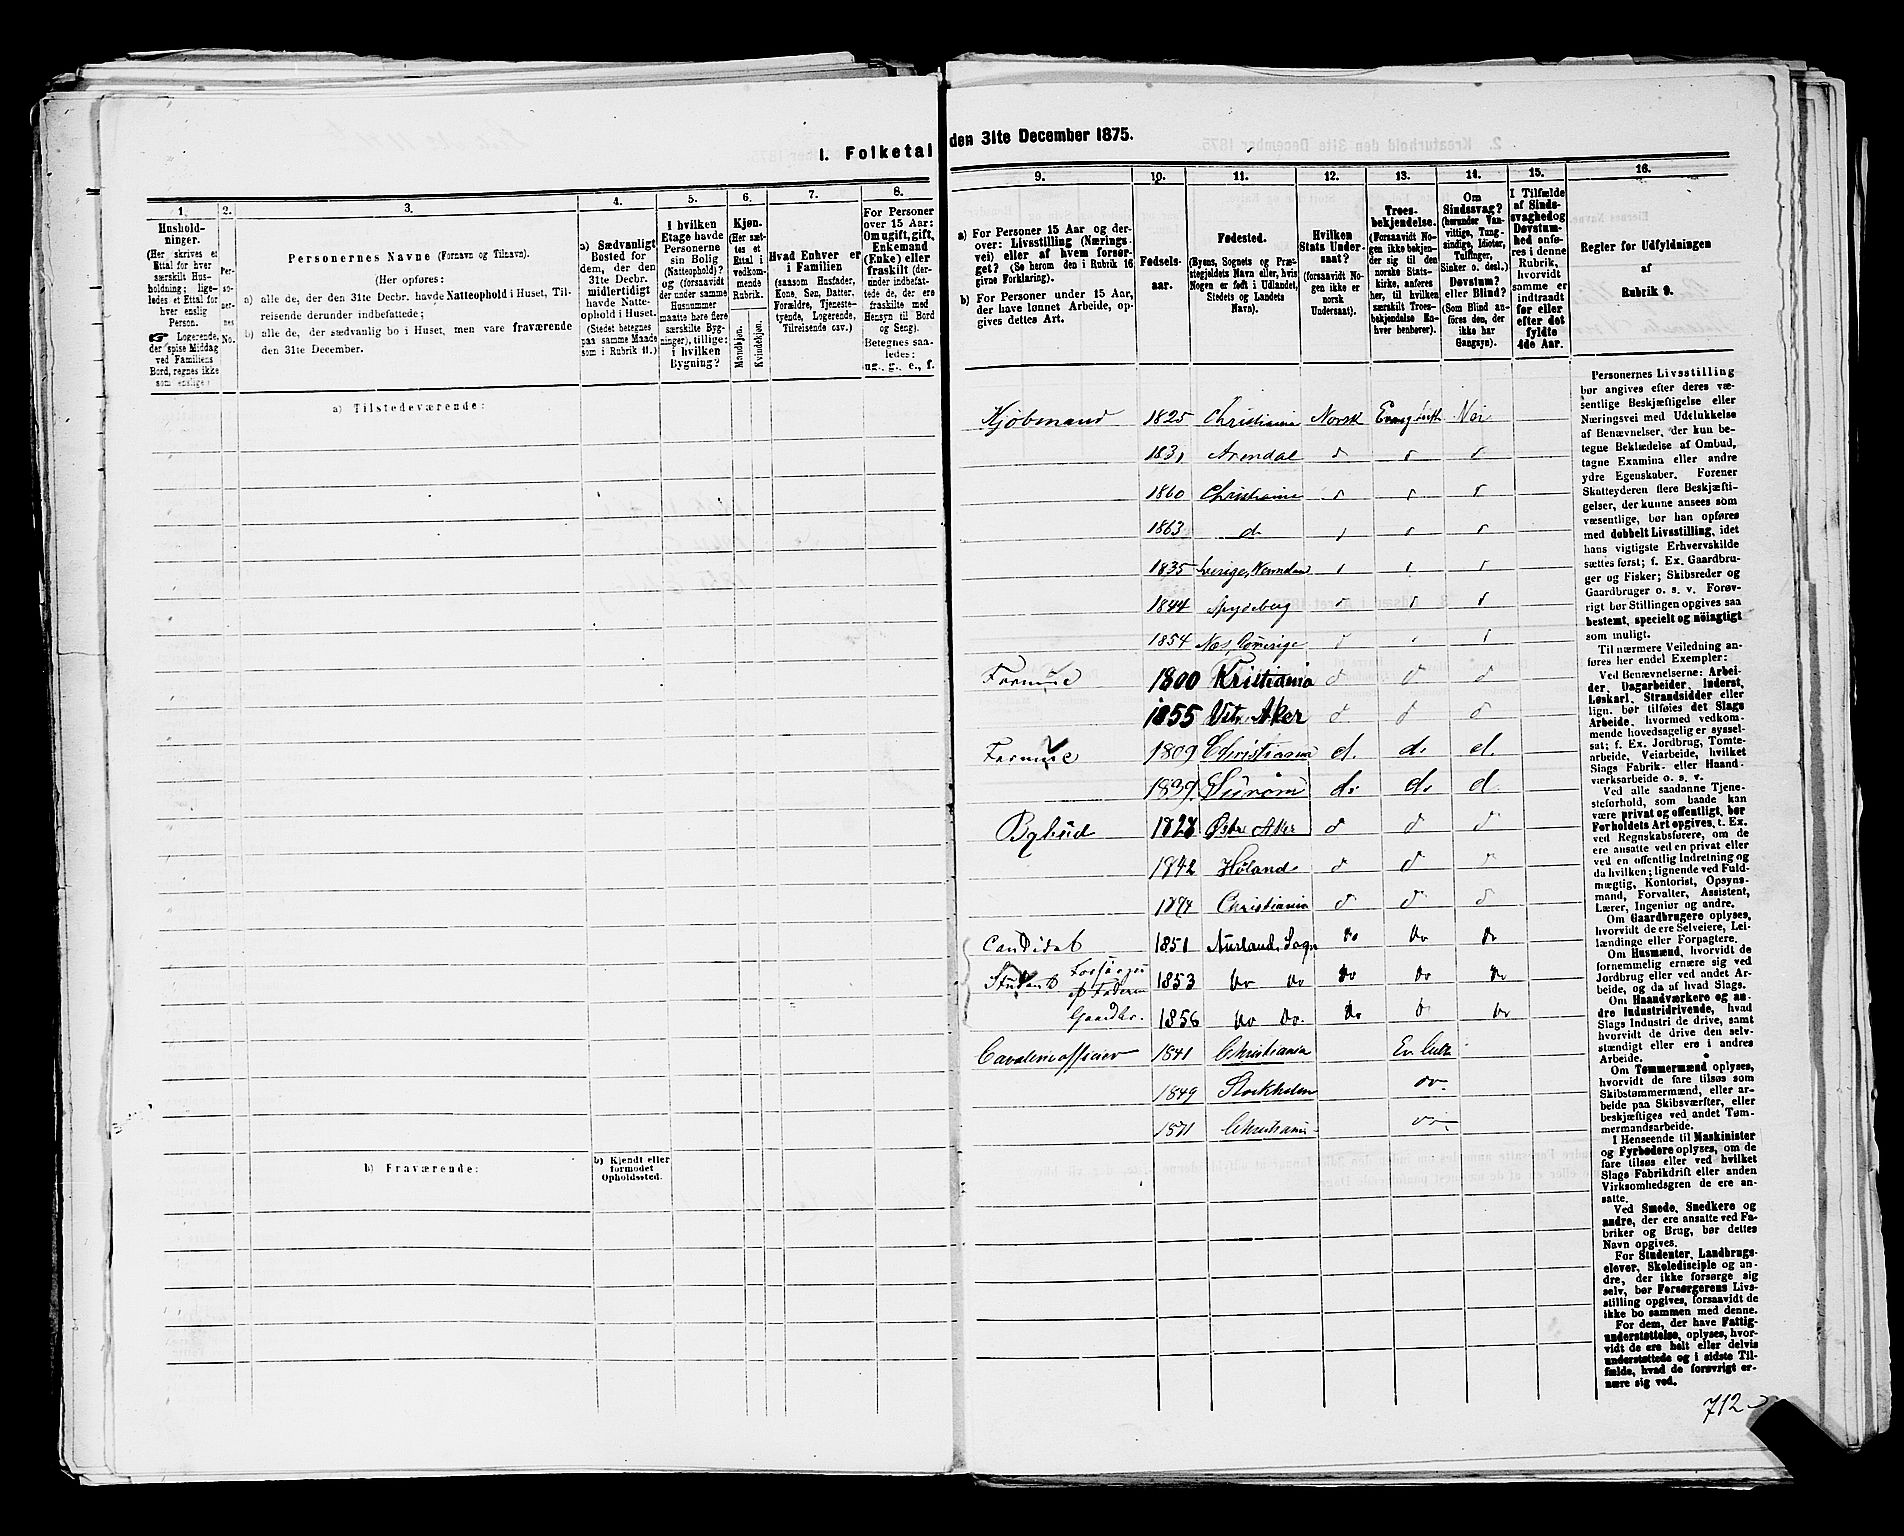 I. Folketal
den 31te December 1875.
1.
Hushold-
ninger.
(Her skrives et
Ettal for hver
særskilt Hus-
holdning; lige-
ledes et Ettal for
hver enslig
Person.
Logerende,
der spise Middag
ved Familiens
Bord, regnes ikke
som enslige.)
2.
Per-
so-
ner-
nes
No.
3.
Personernes Navne (Fornavn og Tilnavn).
(Her opføres:
a) alle de, der den 31te Decbr. havde Natteophold i Huset, Til-
reisende derunder indbefattede;
b) alle de, der sædvanlig bo i Huset, men vare fraværende
den 31te December.
4.
a) Sædvanligt
Bosted for
dem, der den
31te Decbr.
midlertidigt
havde Natte-
ophold i Huset.
(Stedet betegnes
paa samme Maade
som i Rubrik 11.)
5.
I hvilken
Etage havde
Personerne
sin Bolig
(Natteophold)?
og (forsaavidt
der under samme
Husnummer
maatte høre flere
særskilte Byg-
ninger), tillige:
i hvilken
Bygning?
6.
Kjøn.
(Her sæt-
tes et
Ettal i
vedkom-
mende
Rubrik.
Mandkjøn.
Kvindekjøn.
7.
Hvad Enhver er
i Familien
(saasom Husfader,
Kone, Søn, Datter,
Forældre, Tjeneste-
tyende, Logerende,
Tilreisende osv.)
8.
For Personer
over 15 Aar:
Om ugift, gift,
Enkemand
(Enke) eller
fraskilt (der-
under indbefat-
tede de, der ere
fraskilte med
Hensyn til Bord
og Seng).
Betegnes saa-
ledes:
ug., g., e., f.
9.
a) For Personer 15 Aar og der-
over: Livsstilling (Nærings-
vei) eller af hvem forsør-
get? (Se herom den i Rubrik 16
givne Forklaring).
b) For Personer under 15 Aar,
der have lønnet Arbeide, op-
gives dettes Art.
10.
Fødsels-
aar.
11.
Fødested.
(Byens, Sognets og Præ-
stegjeldets Navn eller, hvis
Nogen er født i Udlandet,
Stedets og Landets
Navn).
12.
Hvilken
Stats Under-
saat?
(forsaavidt No-
gen ikke er
norsk
Undersaat).
13.
Troes-
bekjendelse.
(Forsaavidt No-
gen ikke bekjen-
der sig til den
norske Stats-
kirke, anføres
her, til hvilken
særskilt Troes-
bekjendelse En-
hver henhører).
14.
Om
Sindssvag?
(herunder Van-
vittige, Tung-
sindige, Idioter,
Tullinger,
Sinker o. desl.)
Døvstum?
eller Blind?
(Som Blind an-
føres den, der
ikke har
Gangsyn).
15.
I Tilfælde
af Sinds-
svaghed og
Døvstum-
hed anfø-
res i denne
Rubrik,
hvorvidt
samme er
indtraadt
før eller
efter det
fyldte
4de Aar.
16.
Regler for Udfyldningen
af
Rubrik 9.
a) Tilstedeværende:
Kjøbmand 1825 Christiania Norsk Evang luth Nei
1831 Arendal d d d
1860 Christiania d d d
1863 d d d d
1835 Sverige,
1844 Spydeberg d d d
1854 Næs, Romerige d
Formue 1800 Kristiania d d d
1855 Vstr. Aker d d d
Formue 1809 Christiania d. d. d.
1839 d. d. d
Bybud 1828 Østre Aker d d d
1842 Høland d d d
1874 Christiania d d d
Candidat 1851 Aurland, Sogn do do do
Student Forsørges 1853 do do do do do
af Faderen
Gaardbr. 1856 do do. do d do
Cavalerieofficier 1841 Christiania Ev. luth
1849 Stockholm do.
1871 Christiania do.
b) Fraværende:
b) Kjendt eller
formodet
Opholdssted.
Personernes Livsstilling
bør angives efter deres væ-
sentlige Beskjæftigelse eller
Næringsvei med Udelukkelse
af Benævnelser, der kun be-
tegne Beklædelse af Ombud,
tagne Examina eller andre
ydre Egenskaber. Forener
Skatteyderen flere Beskjæfti-
gelser, der kunne ansees som
væsentlige, bør han opføres
med dobbelt Livsstilling, idet
hans vigtigste Erhvervskilde
sættes først; f. Ex. Gaardbru-
ger og Fisker; Skibsreder og
Gaardbruger o. s. v. Forøv-
rigt bør Stillingen opgives saa
bestemt, specielt og nøiagtigt
som muligt.
Til nærmere Veiledning an-
føres her endel Exempler:
Ved Benævnelserne: Arbei-
der, Dagarbeider, Inderst,
Løskarl, Strandsidder eller
lign. bør tilføies det Slags
Arbeide, hvormed vedkom-
mende hovedsagelig er syssel-
sat; f. Ex. Jordbrug, Tomte-
arbeide, Veiarbeide, hvilket
Slags Fabrik- eller Haand-
værksarbeide o. s. v.
Ved alle saadanne Tjene-
steforhold, som baade kan
være privat og offentligt, bør
Forholdets Art opgives, t. Ex.
ved Regnskabsførere, om de
ere ansatte ved en privat eller
ved en offentlig Indretning og
da hvilken; lignende ved Fuld-
mægtig, Kontorist, Opsyns-
mand, Forvalter, Assistent,
Lærer, Ingeniør og andre.
Om Gaardbrugere oplyses,
hvorvidt de ere Selveiere, Lei-
lændinge eller Forpagtere.
Om Husmænd, hvorvidt de
fornemmelig ernære sig ved
Jordbrug eller ved andet Ar-
beide, og da af hvad Slags.
Om Haandværkere og an-
dre Industridrivende, hvad
Slags Industri de drive, samt
hvorvidt de drive den selv-
stændigt eller ere i andres
Arbeide.
Om Tømmermænd oplyses,
hvorvidt de fare tilsøs som
Skibstømmermænd, eller ar-
beide paa Skibsværfter, eller
beskjæftiges ved andet Tøm-
mermandsarbeide.
I Henseende til Maskinister
og Fyrbødere oplyses, om de
fare tilsøs eller ved hvilket
Slags Fabrikdrift eller anden
Virksomhedsgren de ere an-
satte.
Ved Smede, Snedkere og
andre, der ere ansatte ved Fa-
briker og Brug, bør dettes
Navn opgives.
For Studenter, Landbrugs-
elever, Skoledisciple og an-
dre, der ikke forsørge sig
selv, bør Forsørgerens Livs-
stilling opgives, forsaavidt de
ikke bo sammen med denne.
For dem, der have Fattig-
understøttelse, oplyses, hvor-
vidt de ere helt eller delvis
understøttede og i sidste Til-
fælde, hvad de forøvrigt er-
nære sig ved.
712